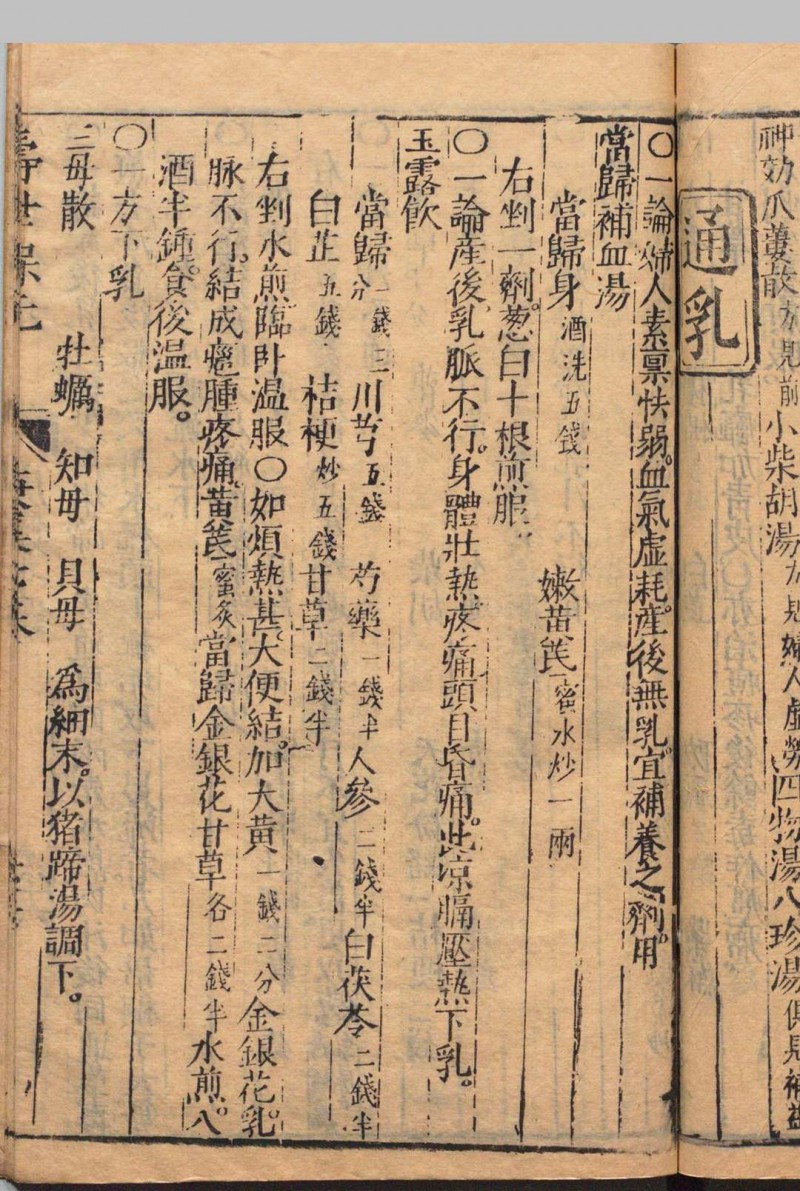 神効瓜蔞散方見前小柴胡湯方見婦人虛勞四物湯八珍湯俱見補益
通乳
〇一論婦人素禀怯弱。血氣虛耗。産後無乳。宜補養之劑。用
當歸補血湯
當歸身酒洗五錢　嫩黄芪蜜水炒一兩
右剉一劑。葱白十根煎服。
〇一論産後乳脈不行。身體壯熱疼痛。頭目昏痛。此凉膈壓熱下乳。
玉露飲
當歸一錢三分　川芎五錢　芍藥一錢半　人參二錢半　白茯苓二錢半
白芷五錢　桔梗炒五錢　甘草二錢半
右剉水煎。臨卧温服〇如煩熱甚。大便結。加大黄一錢二分金銀花。乳
脉不行。結成癰腫疼痛。黄芪蜜炙當歸金銀花甘草各二錢半水煎。入
酒半鍾。食後温服。
〇一方下乳
三母散　牡蠣　知母　貝母　爲細末。以猪蹄湯調下。
壽世保元